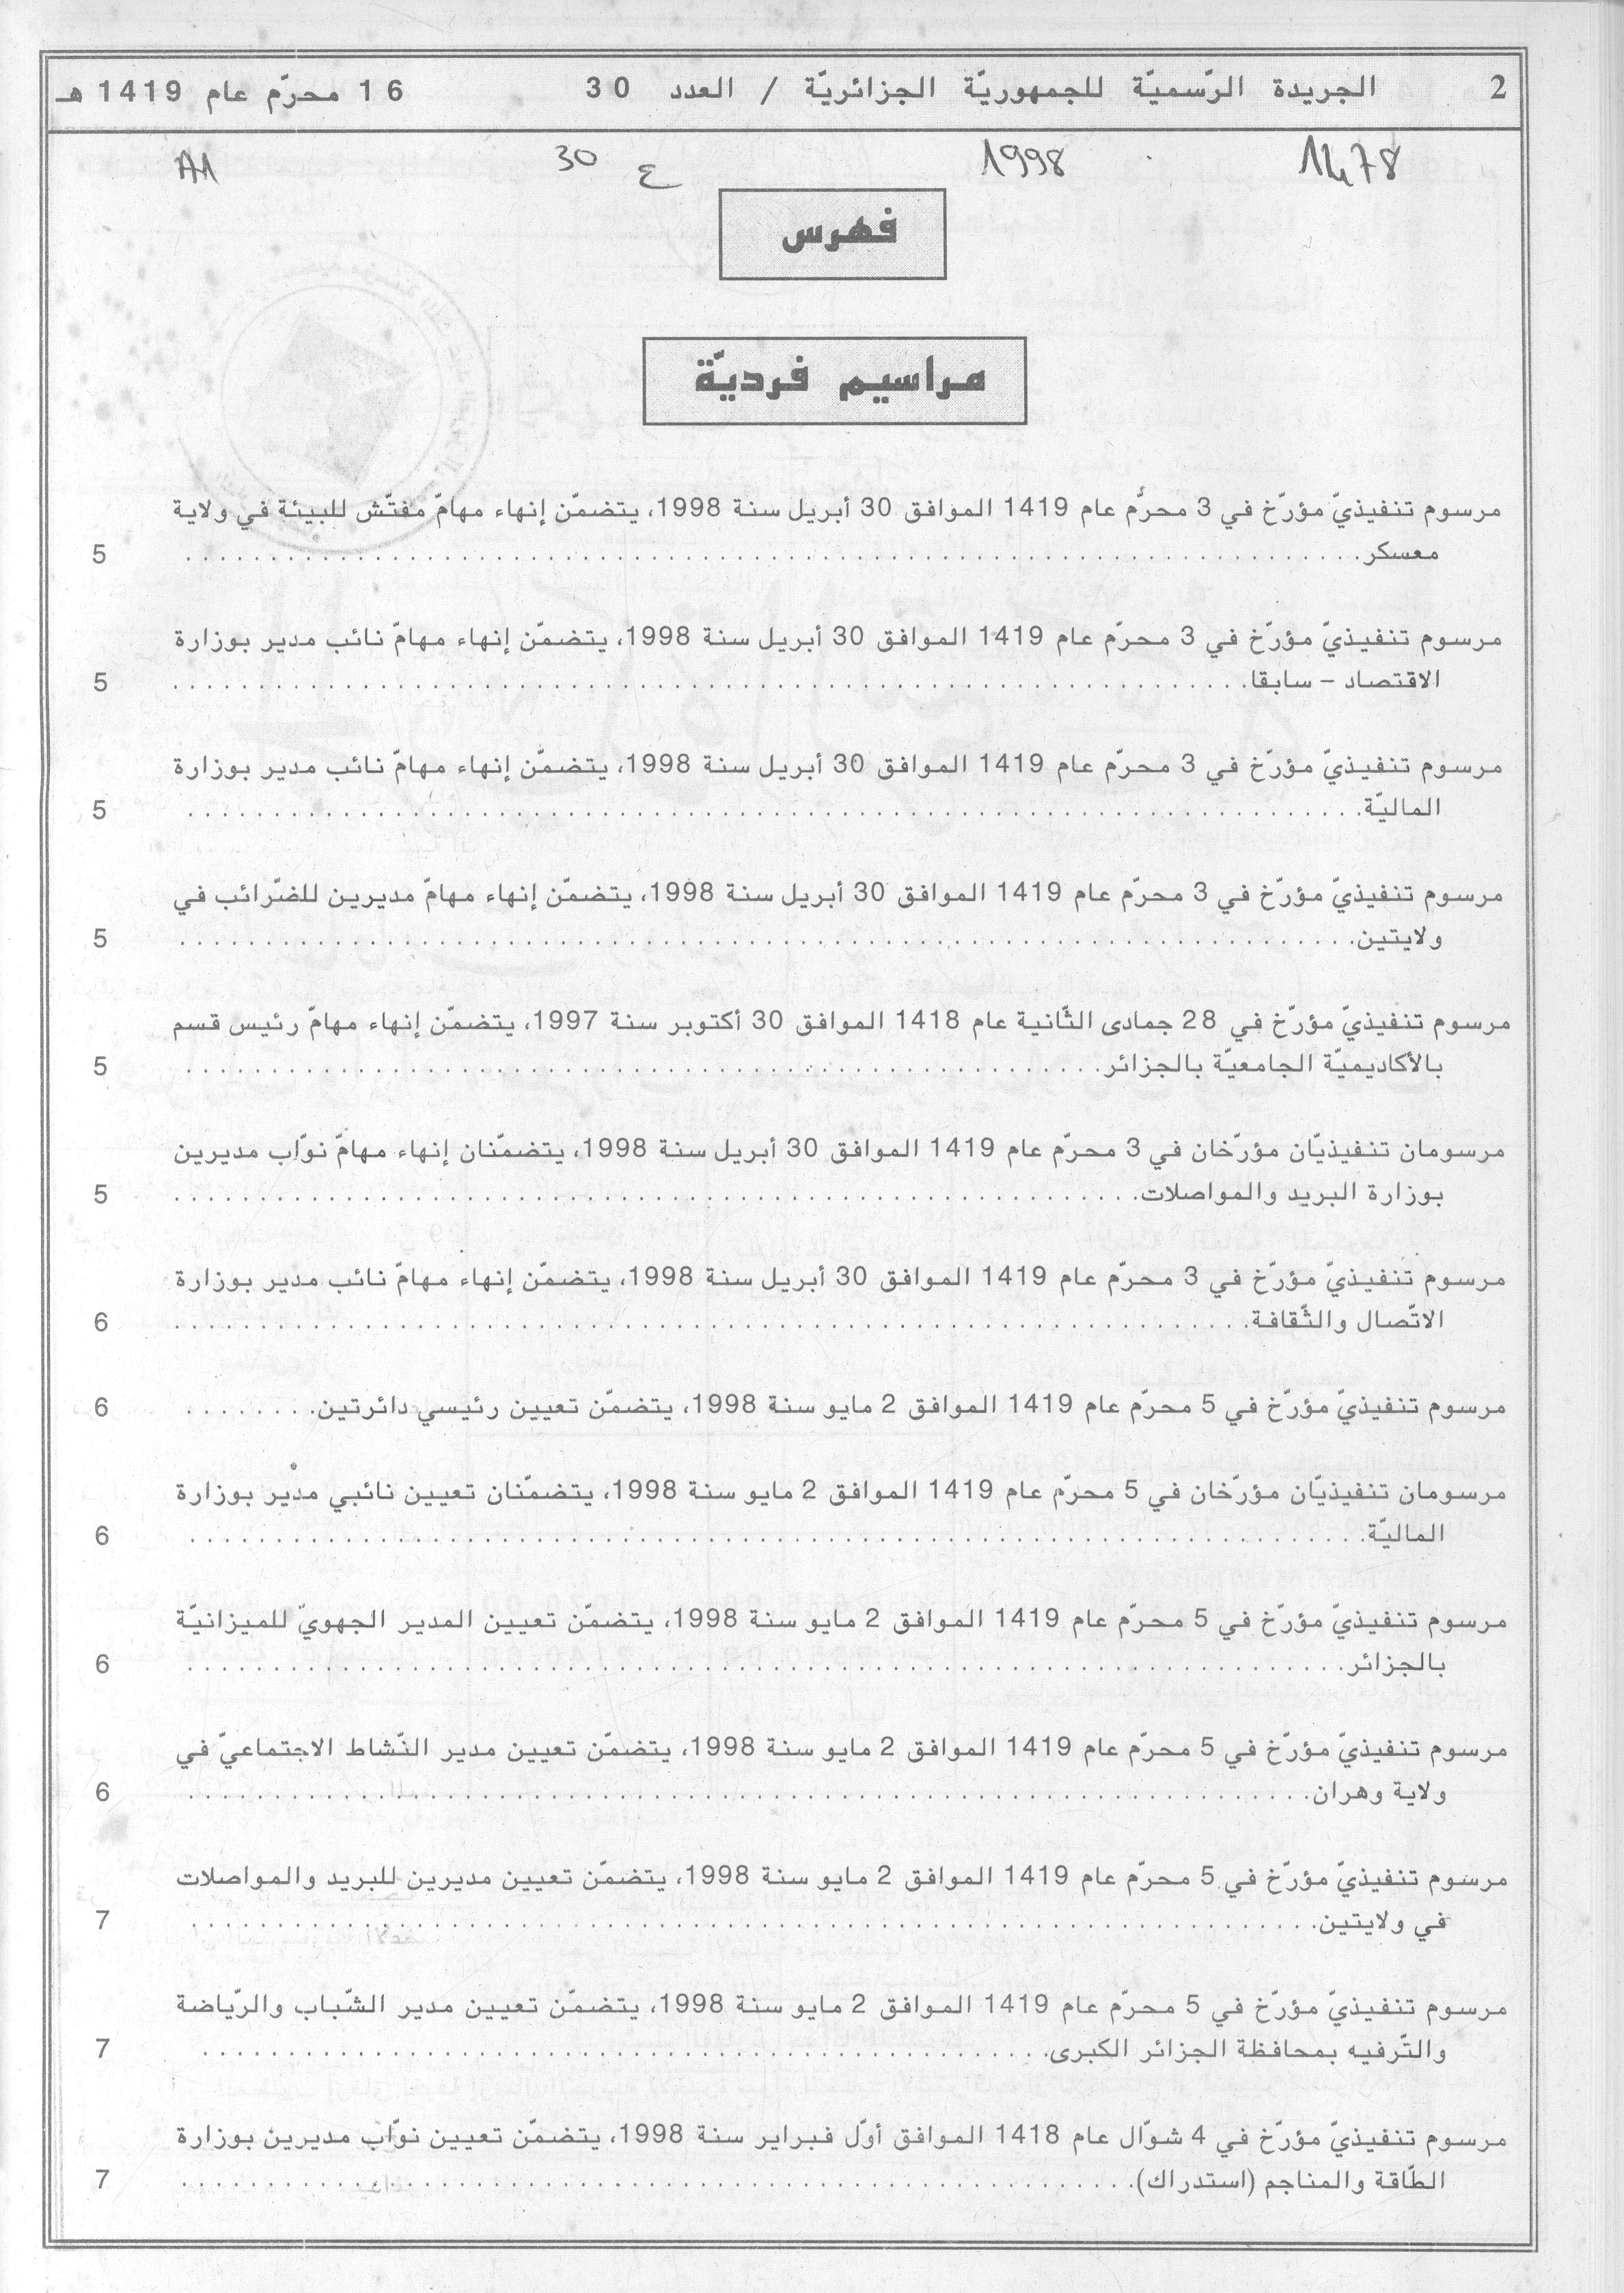 2 الجريدة الرّسميّة للجمهوريّة الجزائريّة / العدد 30 16 محرّم عام 1419 هـ
1478 1998 ع 30 A1
فهرس
مراسيم فرديّة
مرسوم تنفيذيّ مؤرّخ في 3 محرّم عام 1419 الموافق 30 أبريل سنة 1998، يتضمّن إنهاء مهامّ مفتّش للبيئة في ولاية
معسكر. . . . . . . . . . 5
مرسوم تنفيذيّ مؤرّخ في 3 محرّم عام 1419 الموافق 30 أبريل سنة 1998، يتضمّن إنهاء مهامّ نائب مدير بوزارة
الاقتصاد – سابقا. . . . . . . . . . 5
مرسوم تنفيذيّ مؤرّخ في 3 محرّم عام 1419 الموافق 30 أبريل سنة 1998، يتضمّن إنهاء مهامّ نائب مدير بوزارة
الماليّة. . . . . . . . . . 5
مرسوم تنفيذيّ مؤرّخ في 3 محرّم عام 1419 الموافق 30 أبريل سنة 1998، يتضمّن إنهاء مهامّ مديرين للضّرائب في
ولايتين. . . . . . . . . . 5
مرسوم تنفيذيّ مؤرّخ في 28 جمادى الثّانية عام 1418 الموافق 30 أكتوبر سنة 1997، يتضمّن إنهاء مهامّ رئيس قسم
بالأكاديميّة الجامعيّة بالجزائر. . . . . . . . . . 5
مرسومان تنفيذيّان مؤرّخان في 3 محرّم عام 1419 الموافق 30 أبريل سنة 1998، يتضمّنان إنهاء مهامّ نوّاب مديرين
بوزارة البريد والمواصلات. . . . . . . . . . 5
مرسوم تنفيذيّ مؤرّخ في 3 محرّم عام 1419 الموافق 30 أبريل سنة 1998، يتضمّن إنهاء مهامّ نائب مدير بوزارة
الاتّصال والثّقافة. . . . . . . . . . 6
مرسوم تنفيذيّ مؤرّخ في 5 محرّم عام 1419 الموافق 2 مايو سنة 1998، يتضمّن تعيين رئيسي دائرتين. . . . . . . . 6
مرسومان تنفيذيّان مؤرّخان في 5 محرّم عام 1419 الموافق 2 مايو سنة 1998، يتضمّنان تعيين نائبي مدير بوزارة
الماليّة. . . . . . . . . . 6
مرسوم تنفيذيّ مؤرّخ في 5 محرّم عام 1419 الموافق 2 مايو سنة 1998، يتضمّن تعيين المدير الجهويّ للميزانيّة
بالجزائر. . . . . . . . . . 6
مرسوم تنفيذيّ مؤرّخ في 5 محرّم عام 1419 الموافق 2 مايو سنة 1998، يتضمّن تعيين مدير النّشاط الاجتماعيّ في
ولاية وهران. . . . . . . . . . 6
مرسوم تنفيذيّ مؤرّخ في 5 محرّم عام 1419 الموافق 2 مايو سنة 1998، يتضمّن تعيين مديرين للبريد والمواصلات
في ولايتين. . . . . . . . . . 7
مرسوم تنفيذيّ مؤرّخ في 5 محرّم عام 1419 الموافق 2 مايو سنة 1998، يتضمّن تعيين مدير الشّباب والرّياضة
والتّرفيه بمحافظة الجزائر الكبرى. . . . . . . . . . 7
مرسوم تنفيذيّ مؤرّخ في 4 شوّال عام 1418 الموافق أوّل فبراير سنة 1998، يتضمّن تعيين نوّاب مديرين بوزارة
الطّاقة والمناجم (استدراك). . . . . . . . . . 7